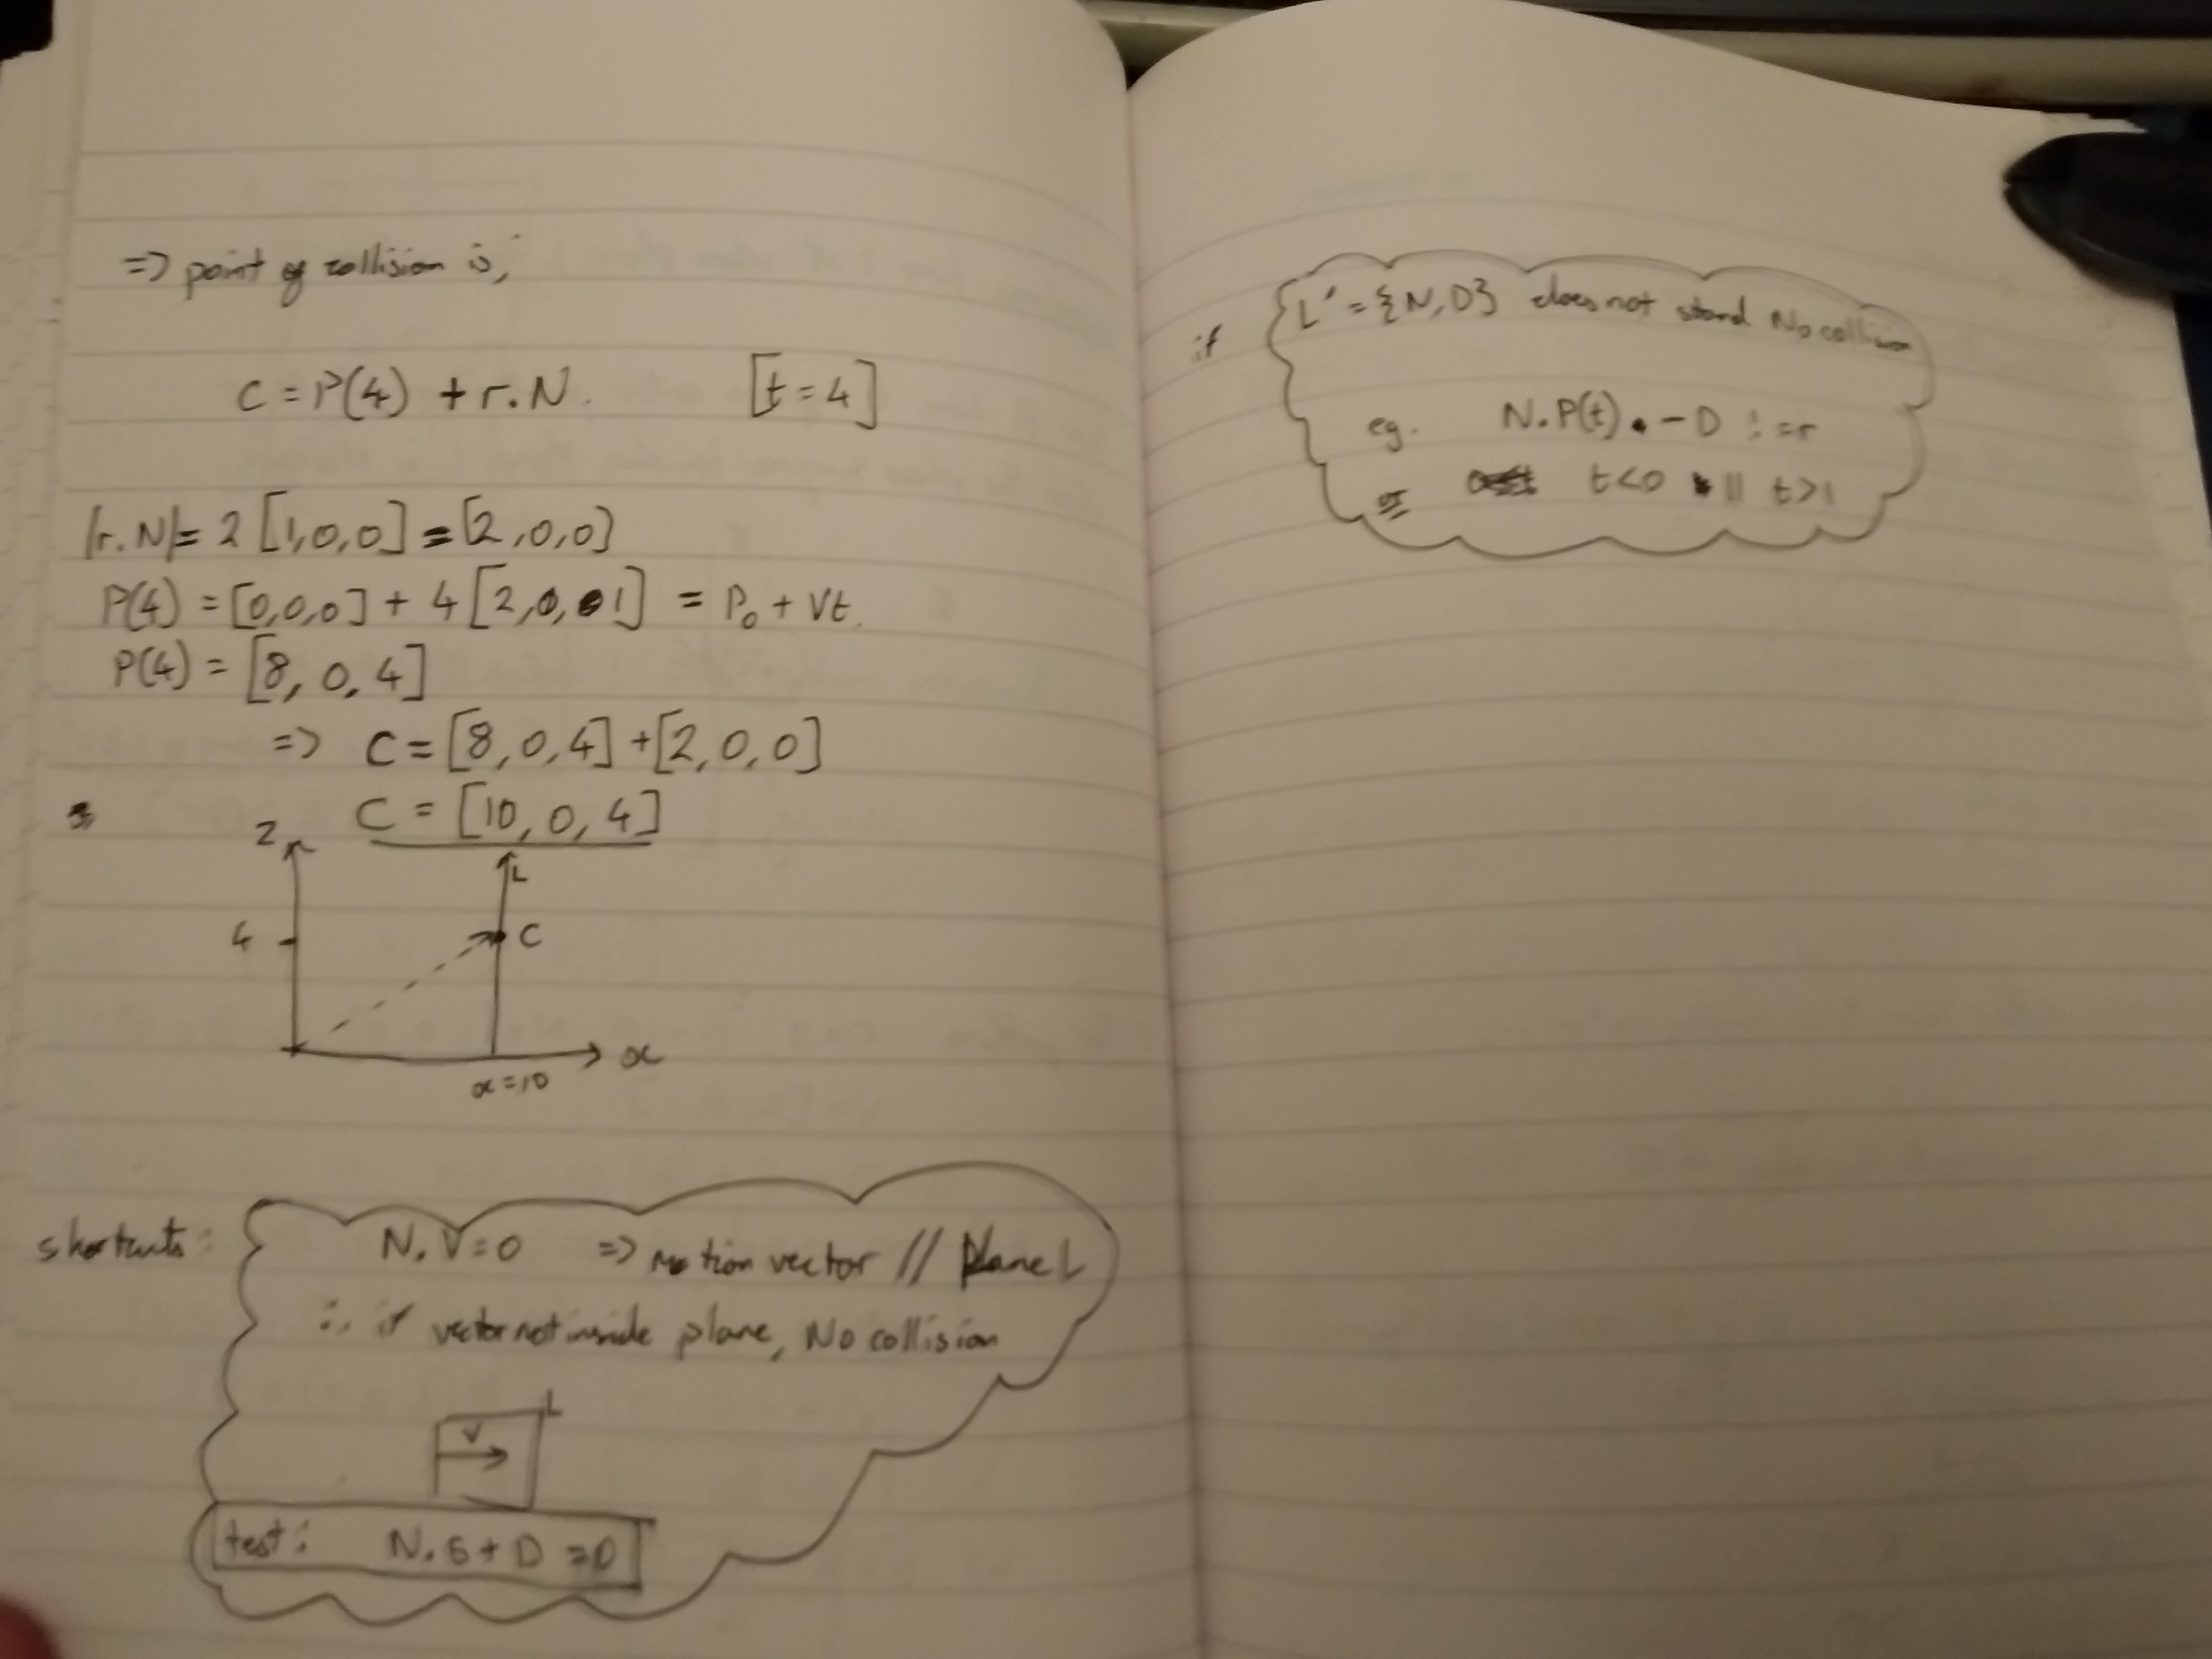 => point of collision is;
C = P(4) + r.N. [t = 4]
|r.N|= 2 [1,0,0] = [2,0,0]
P(4) = [0,0,0] + 4 [2,0,1] = P₀ + Vt.
P(4) = [8, 0, 4]
=> C = [8, 0, 4] + [2, 0, 0]
C = [10, 0, 4]
Z
L
4
C
x
x=10
shortcuts:
N.V=0 => motion vector // plane L
∴ if vector not inside plane, No collision
L
V
test: N.S + D = 0
if L' = {N,D} does not stand No collision
eg. N.P(t). - D != r
or t<0 || t>1